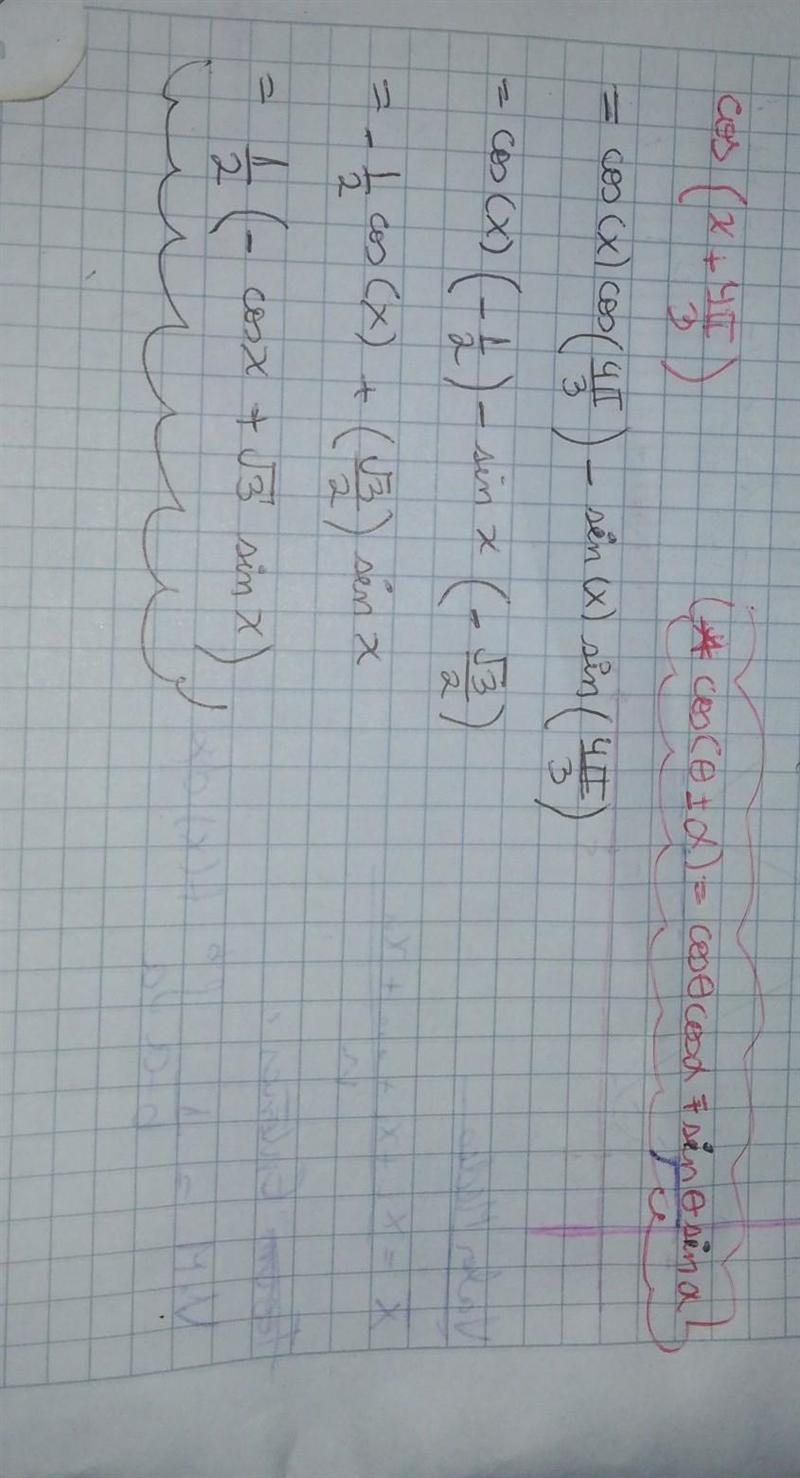 cos(x + 4π/3)
(* cos(θ ± α) = cosθ cosα ∓ sinθ sinα)
= cos(x) cos(4π/3) - sen(x) sin(4π/3)
= cos(x) (-1/2) - sin x (-√3/2)
= -1/2 cos(x) + (√3/2) sen x
= 1/2 (- cosx + √3 sin x)